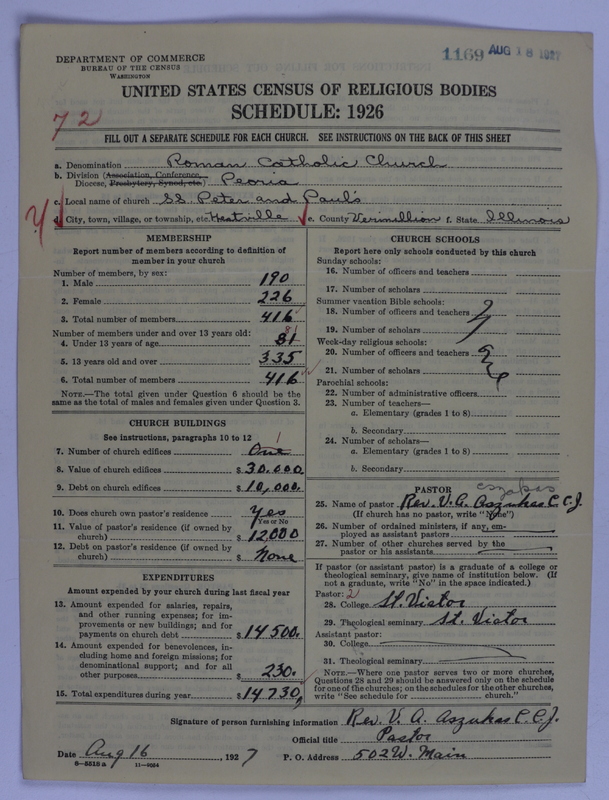 1169 AUG 18 1927
DEPARTMENT OF COMMERCE
BUREAU OF THE CENSUS
WASHINGTON
UNITED STATES CENSUS OF RELIGIOUS BODIES
SCHEDULE: 1926
72
FILL OUT A SEPARATE SCHEDULE FOR EACH CHURCH. SEE INSTRUCTIONS ON THE BACK OF THIS SHEET
a. Denomination Roman Catholic Church
b. Division (Association, Conference,
Diocese, Presbytery, Synod, etc.) Peoria
c. Local name of church SS. Peter and Paul's
d. City, town, village, or township, etc. Westville e. County Vermillion f. State Illinois
MEMBERSHIP
Report number of members according to definition of
member in your church
Number of members, by sex:
1. Male 190
2. Female 226
3. Total number of members 416
Number of members under and over 13 years old:
4. Under 13 years of age 81
5. 13 years old and over 335
6. Total number of members 416
NOTE.—The total given under Question 6 should be
same as the total of males and females given under Question 3.
CHURCH BUILDINGS
See instructions, paragraphs 10 to 12
7. Number of church edifices One 1
8. Value of church edifices $ 30,000.
9. Debt on church edifices $ 10,000.
10. Does church own pastor's residence Yes
Yes or No
11. Value of pastor's residence (if owned by
church) $ 12,000
12. Debt on pastor's residence (if owned by
church) $ None
EXPENDITURES
Amount expended by your church during last fiscal year
13. Amount expended for salaries, repairs,
and other running expenses; for im-
provements or new buildings; and for
payments on church debt $ 14,500.
14. Amount expended for benevolences, in-
cluding home and foreign missions; for
denominational support; and for all
other purposes $ 230.
15. Total expenditures during year $ 14730,
CHURCH SCHOOLS
Report here only schools conducted by this church
Sunday schools:
16. Number of officers and teachers
17. Number of scholars
Summer vacation Bible schools:
18. Number of officers and teachers
19. Number of scholars
Week-day religious schools:
20. Number of officers and teachers
21. Number of scholars
Parochial schools:
22. Number of administrative officers
23. Number of teachers—
a. Elementary (grades 1 to 8)
b. Secondary
24. Number of scholars—
a. Elementary (grades 1 to 8)
b. Secondary
PASTOR
25. Name of pastor Rev. V. A. Aszukas C.C.J.
(If church has no pastor, write "None")
26. Number of ordained ministers, if any, em-
ployed as assistant pastors
27. Number of other churches served by the
pastor or his assistants
If pastor (or assistant pastor) is a graduate of a college or
theological seminary, give name of institution below. (If
not a graduate, write "No" in the space indicated.)
Pastor: 2
28. College St. Viator
29. Theological seminary St. Viator
Assistant pastor:
30. College
31. Theological seminary
NOTE.—Where one pastor serves two or more churches,
Questions 28 and 29 should be answered only on the schedule
for one of the churches; on the schedules for the other churches,
write "See schedule for church."
Signature of person furnishing information Rev. V. A. Aszukas C.C.J.
Official title Pastor
Date Aug 16, 1927 P. O. Address 502 W. Main
8-5515 a 11-9034